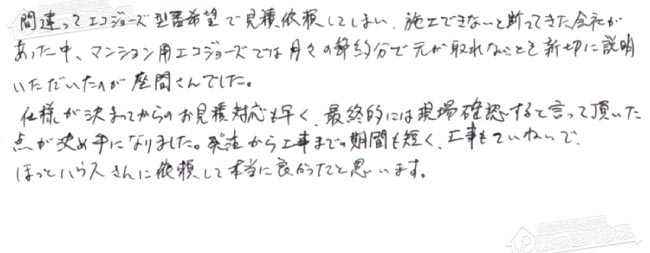 間違ってエコジョーズ型番希望で見積依頼してしまい、施工できないと断ってきた会社が
あった中、マンション用エコジョーズでは月々の節約分で元が取れないことを親切に説明
いただいたのが座間さんでした。
仕様が決まってからのお見積対応も早く、最終的には現場確認すると言って頂いた
点が決め手になりました。発注から工事までの期間も短く、工事もていねいで、
ほっとハウスさんに依頼して本当に良かったと思います。
ほっとハウス